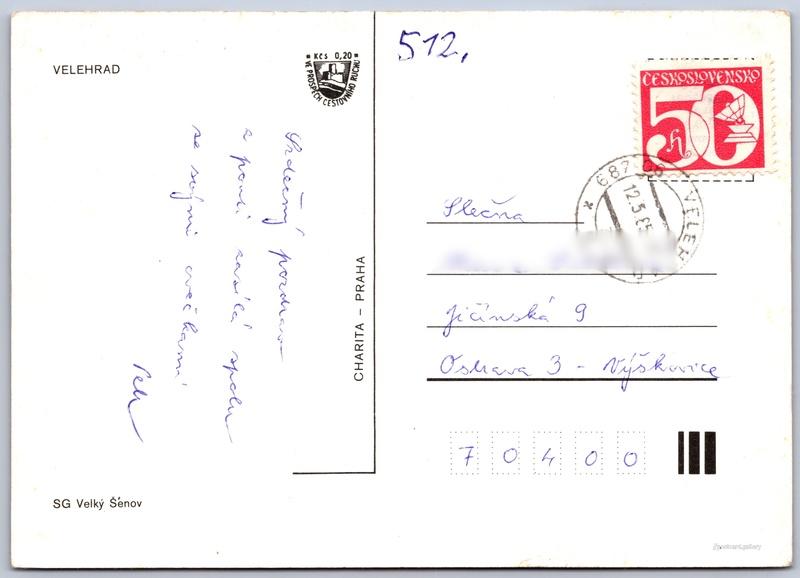 VELEHRAD
Kčs 0,20
VE PROSPĚCH CESTOVNÍHO RUCHU
Srdečný pozdrav
z pouti zasílá spolu
se svými ovečkami
Petr
CHARITA – PRAHA
SG Velký Šenov
512,
ČESKOSLOVENSKO
50 h
687 06 VELEH
12.5.85
Slečna
Jičínská 9
Ostrava 3 - Výškovice
70400